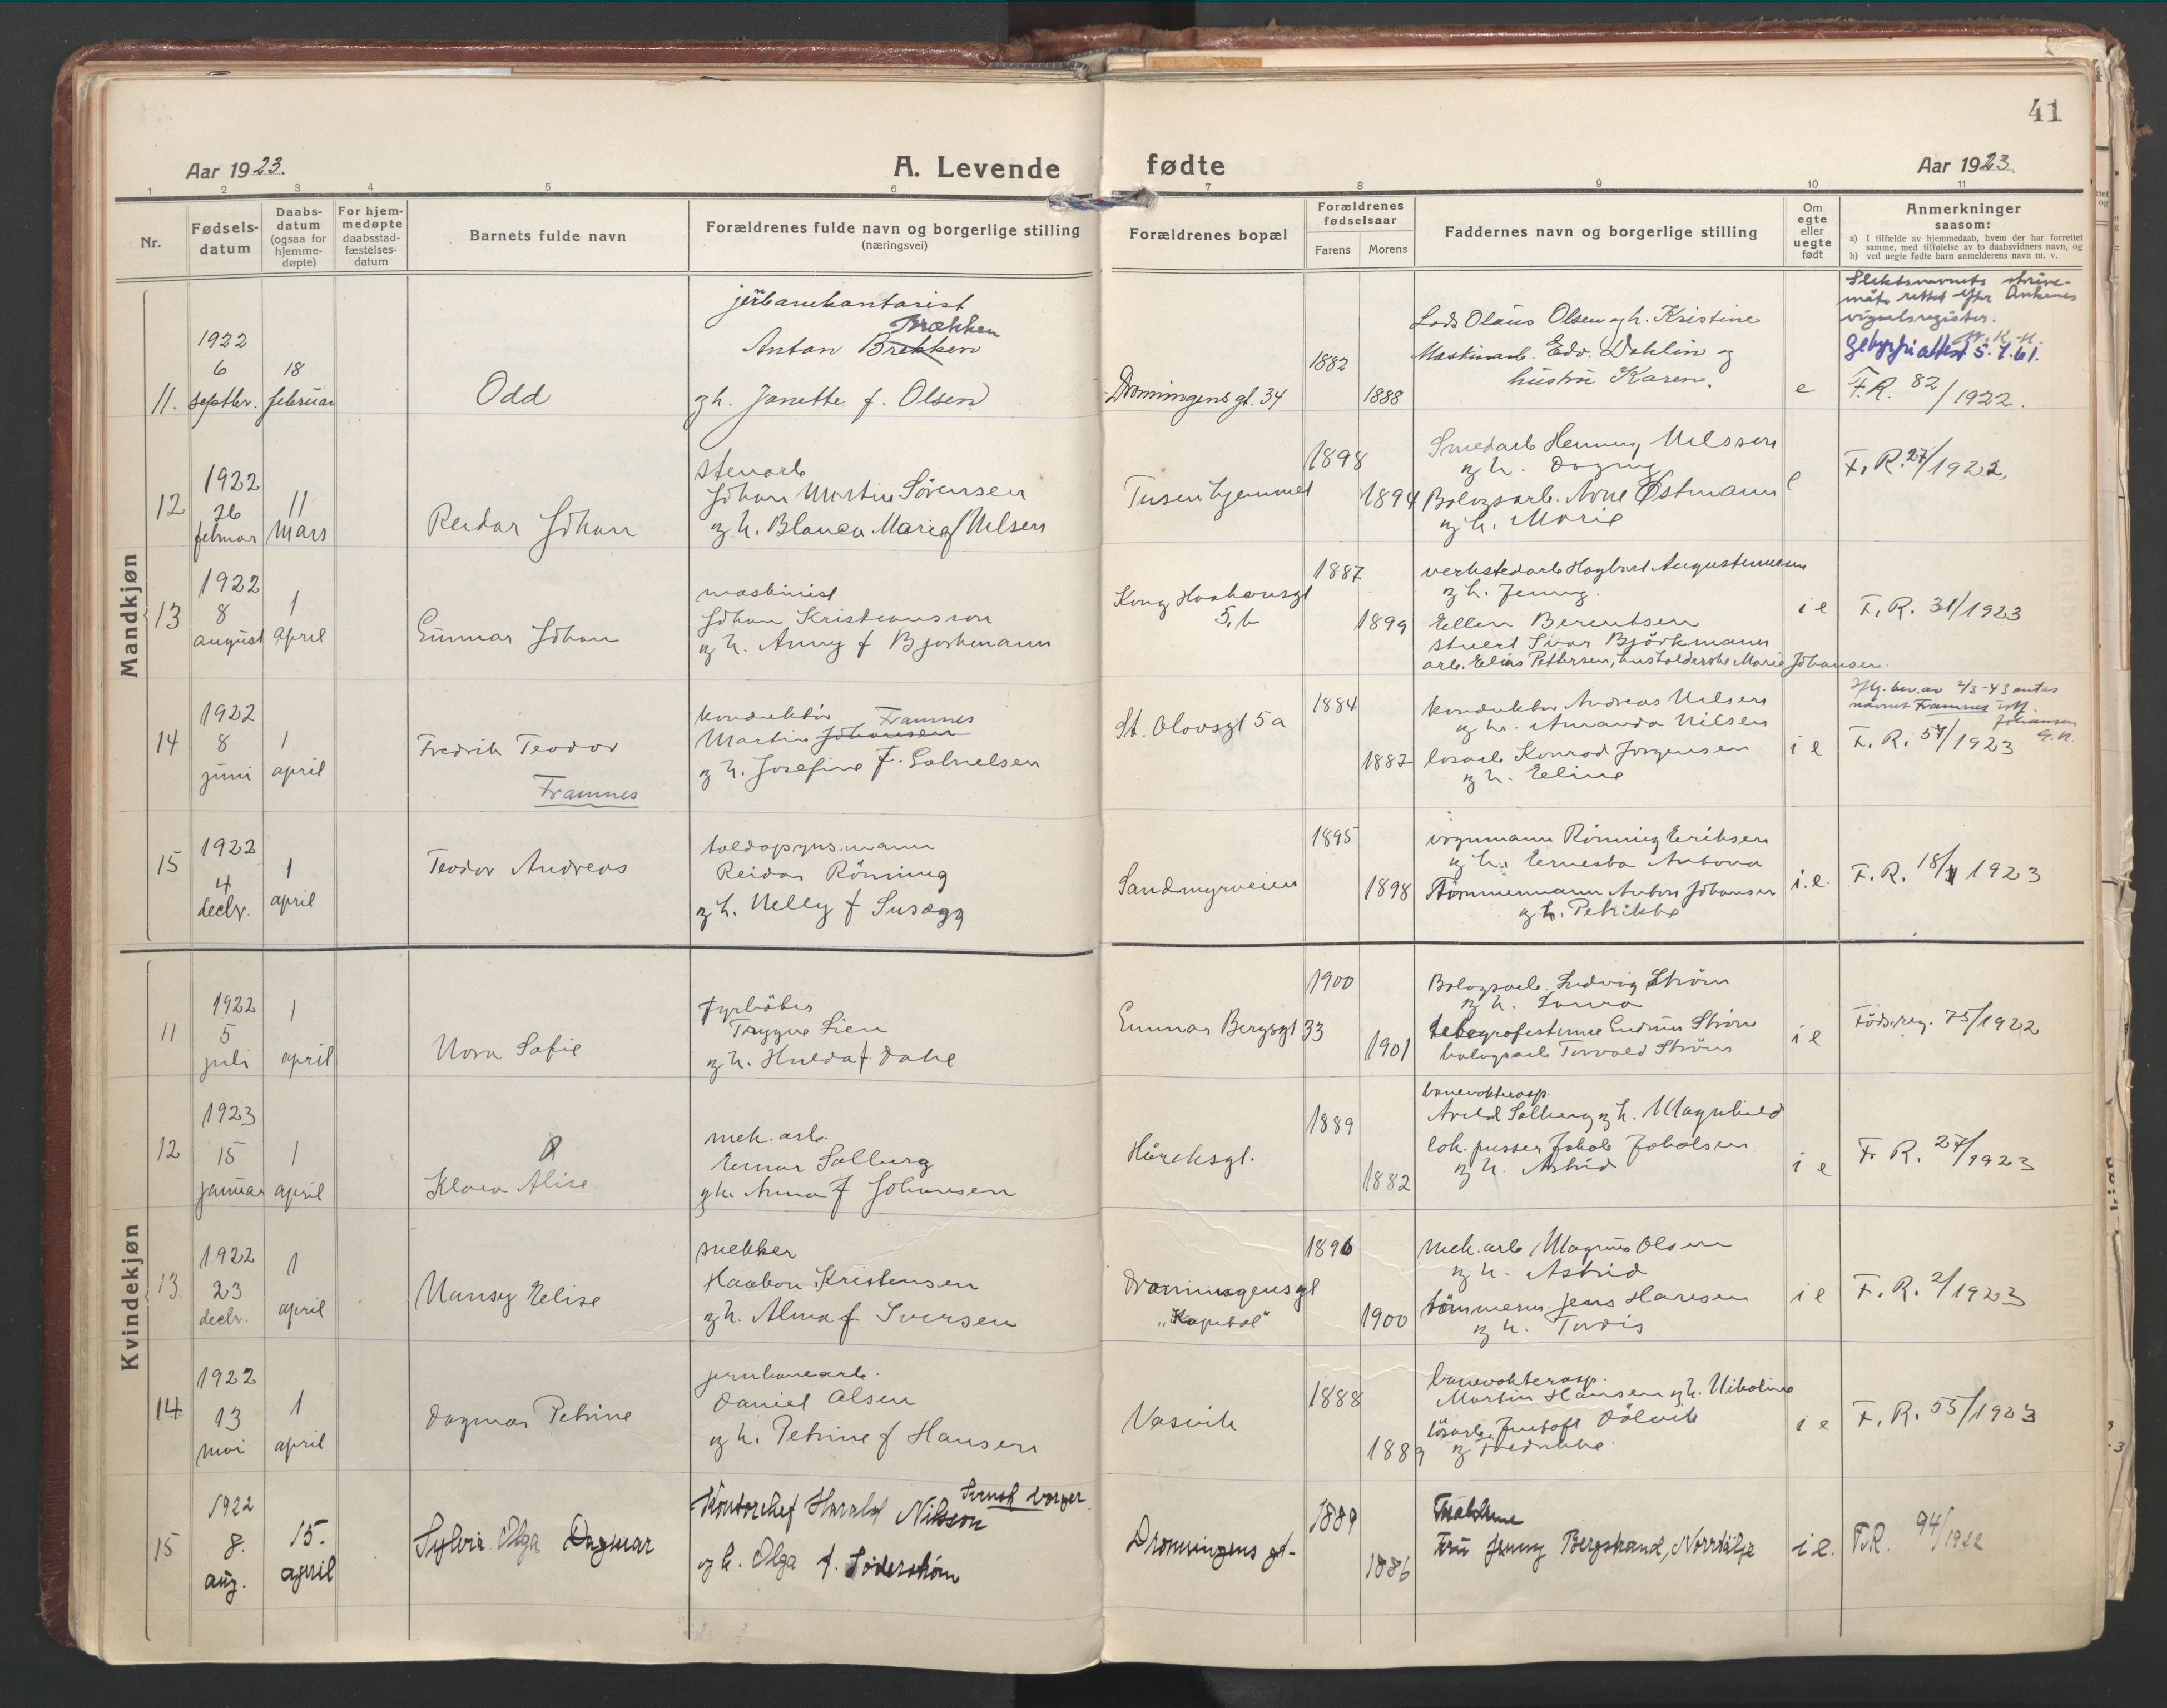 41
Aar 1923.
A. Levende
fødte
Aar 1923.
1 2 3 4 5 6 7 8 9 10 11
Nr.
Fødsels-
datum
Daabs-
datum
(ogsaa for
hjemme-
døpte)
For hjem-
medøpte
daabsstad-
fæstelses-
datum
Barnets fulde navn
Forældrenes fulde navn og borgerlige stilling
(næringsvei)
Forældrenes bopæl
Forældrenes
fødselsaar
Farens
Morens
Faddernes navn og borgerlige stilling
Om
egte
eller
uegte
født
Anmerkninger
saasom:
a) I tilfælde av hjemmedaab, hvem der har forrettet
samme, med tilføielse av to daabsvidners navn, og
b) ved uegte fødte barn anmelderens navn m. v.
Mandkjøn
11.
1922
6
septbr.
18
februar
Odd
Brækken
Anton Brekken
og h. Janette f. Olsen
Dronningensgt. 34
1882
1888
Lods Olaus Olsen og h. Kristine
Maskinarb. Edv. Dahlin og
hustru Karen.
e
Slektsnavnets skrive-
måte rettet efter Ankenes
vigselsregister.
Gebyrfri attest 5.7.61.
F.R. 82/1922.
12
1922
26
februar
11
mars
Reidar Johan
stenarb
Johan Martin Sörensen
og h. Blanca Marie f Nilsen
Tusenhjemmet
1898
1894
Smedarb Henning Nilssen
og h. Dagny
Bolagsarb. Arne Østmann
og h. Marie
e
F. R. 27/1922,
13
1922
8
august
1
april
Gunnar Johan
maskinist
Johan Kristiansson
og h. Anny f Bjorkmann
Kong Haakonsgt
5, b
1887
1899
verkstedarb Hagbart Augustinussen
og h. Jenny.
Ellen Berentsen
stuert Ivar Björkmann
arb. Elias Pettersen, husholderske Marie Johansen.
i e
F. R. 31/1923
14
1922
8
juni
1
april
Fredrik Teodor
Framnes
konduktör Framnes
Martin Johansen
og h. Josefine f. Gabrielsen
St. Olavsgt 5a
1884
1887
konduktör Andreas Nilsen
og h. Amanda Nilsen
losarb Konrad Jorgensen
og h. Eline
i e
Iflg. bev. av 2/3-43 antas
navnet Framnes istf.
Johansen
F. R. 57/1923
15
1922
4
decbr.
1
april
Teodor Andreas
toldopsynsmann
Reidar Rönning
og h. Nelly f Susægg
Sandmyrveien
1895
1898
vognmann Rönning Eriksen
og h. Ernesta Antona
Tömmermann Anton Johansen
og h. Petrikke
i. e.
F. R. 18/1923
Kvindekjøn
11
1922
5
juli
1
april
Nora Sofie
fyrböter
Trygve Lien
og h. Hulda f Dahl
Gunnar Bergsgt 33
1900
1901
Bolagsarb. Ludvig Ström
og h. Laura
telegrafistinne Gudrun Ström
bolagsarb Torvald Ström
i e
Födsreg. 75/1922
12
1923
15
januar
1
april
Klara Alise
mek. arb.
Einar Solberg
og h. Anna f Johansen
Håreksgt.
1889
1882
banevokterasp.
Arild Solberg og h. Magnhild
lok. pusser Jakob Jakobsen
og h. Astrid
i e
F. R. 27/1923
13
1922
23
decbr.
1
april
Nansy Elise
snekker
Haakon Kristensen
og h. Alma f Iversen
Dronningensgt
"Kapitol"
1896
1900
mek. arb Magnus Olsen
og h. Astrid
tömmerm. Jens Hansen
og h. Tordis
i e
F. R. 2/1923
14
1922
13
mai
1
april
Dagmar Petrine
jernbanearb.
Daniel Olsen
og h. Petrine f Hansen
Vasvik
1888
1889
banevokterasp.
Martin Hansen og h. Nikoline
i e
F. R. 55/1923
15
1922
8.
aug.
15.
april
Sylvia Olga Dagmar
Svensk borger.
Kontorchef Harald Nilsson
og h. Olga f. Söderström
Dronningens gt.
1889
1886
Fru Jenny Bergstrand, Norrtälje
i e.
F.R. 94/1922